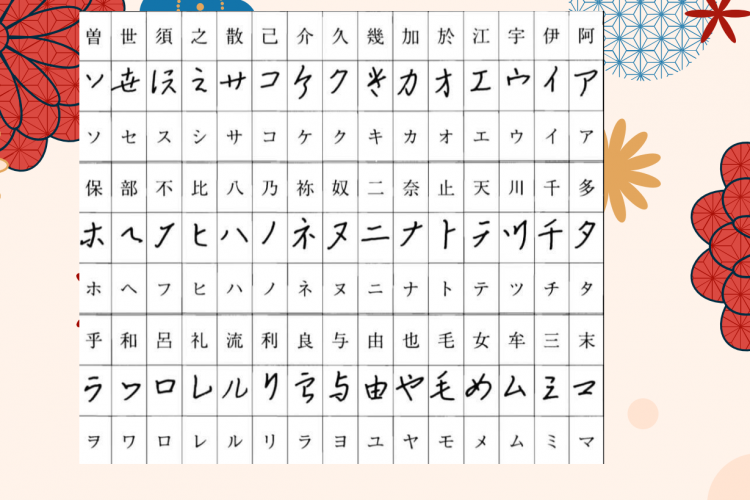 曽 世 須 之 散 己 介 久 幾 加 於 江 宇 伊 阿
ソ せ え サ コ ケ ク き カ オ エ ウ イ ア
ソ セ ス シ サ コ ケ ク キ カ オ エ ウ イ ア
保 部 不 比 八 乃 祢 奴 二 奈 止 天 川 千 多
ホ ヘ フ ヒ ハ ノ ネ ヌ ニ ナ ト テ ツ 千 タ
ホ ヘ フ ヒ ハ ノ ネ ヌ ニ ナ ト テ ツ チ タ
乎 和 呂 礼 流 利 良 与 由 也 毛 女 牟 三 末
ヲ ワ ロ レ ル リ 与 由 や 毛 め ム ミ マ
ヲ ワ ロ レ ル リ ラ ヨ ユ ヤ モ メ ム ミ マ